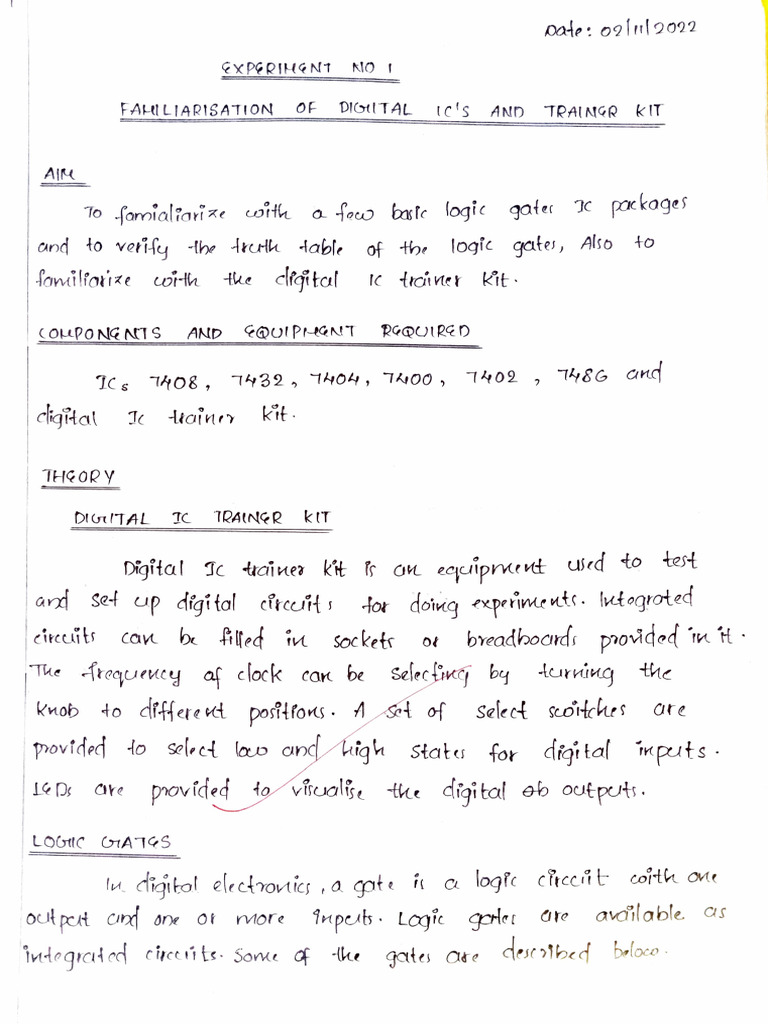 Date: 02/11/2022
EXPERIMENT NO 1
FAMILIARISATION OF DIGITAL IC'S AND TRAINER KIT
AIM
To famialiarize with a few basic logic gates IC packages
and to verify the truth table of the logic gates, Also to
familiarize with the digital IC trainer kit.
COMPONENTS AND EQUIPMENT REQUIRED
ICs 7408, 7432, 7404, 7400, 7402, 7486 and
digital Ic trainer kit.
THEORY
DIGITAL IC TRAINER KIT
Digital Ic trainer kit is an equipment used to test
and set up digital circuits for doing experiments. Integrated
circuits can be filled in sockets or breadboards provided in it.
The frequency of clock can be selecting by turning the
knob to different positions. A set of select switches are
provided to select low and high states for digital inputs.
LEDs are provided to visualise the digital outputs.
LOGIC GATES
In digital electronics, a gate is a logic circuit with one
output and one or more inputs. Logic gates are available as
integrated circuits. Some of the gates are described below.